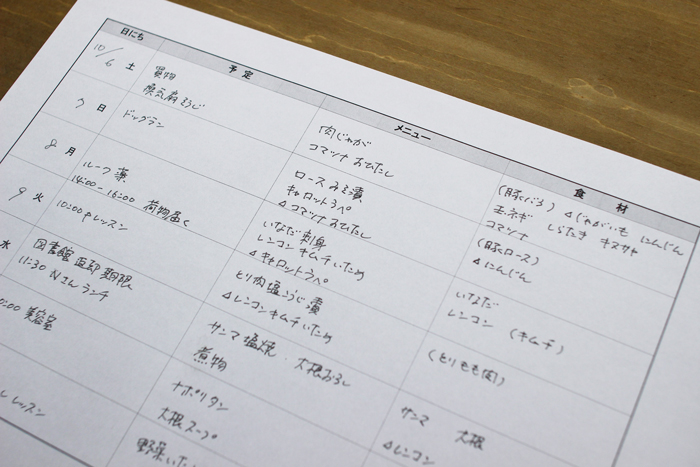 日にち 予定 メニュー 食材
10/6 土 買物
換気扇そうじ
肉じゃが
コマツナ おひたし
(豚バラ) △じゃがいも にんじん
玉ネギ しらたき キヌサヤ
コマツナ
7 日 ドッグラン
ロースみそ漬
キャロットラペ
△コマツナ おひたし
(豚ロース)
△にんじん
8 月 ルーフ 薬
14:00-16:00 荷物届く
いなだ刺身
レンコン キムチいため
△キャロットラペ
いなだ
レンコン (キムチ)
9 火 10:00 レッスン
とり肉塩こうじ漬
△レンコン キムチいため
(とりもも肉)
水 図書館 返却期限
11:30 Nさん ランチ
サンマ塩焼・大根おろし
煮物
サンマ 大根
△レンコン
0:00 美容室
ナポリタン
大根スープ
レッスン
野菜いた